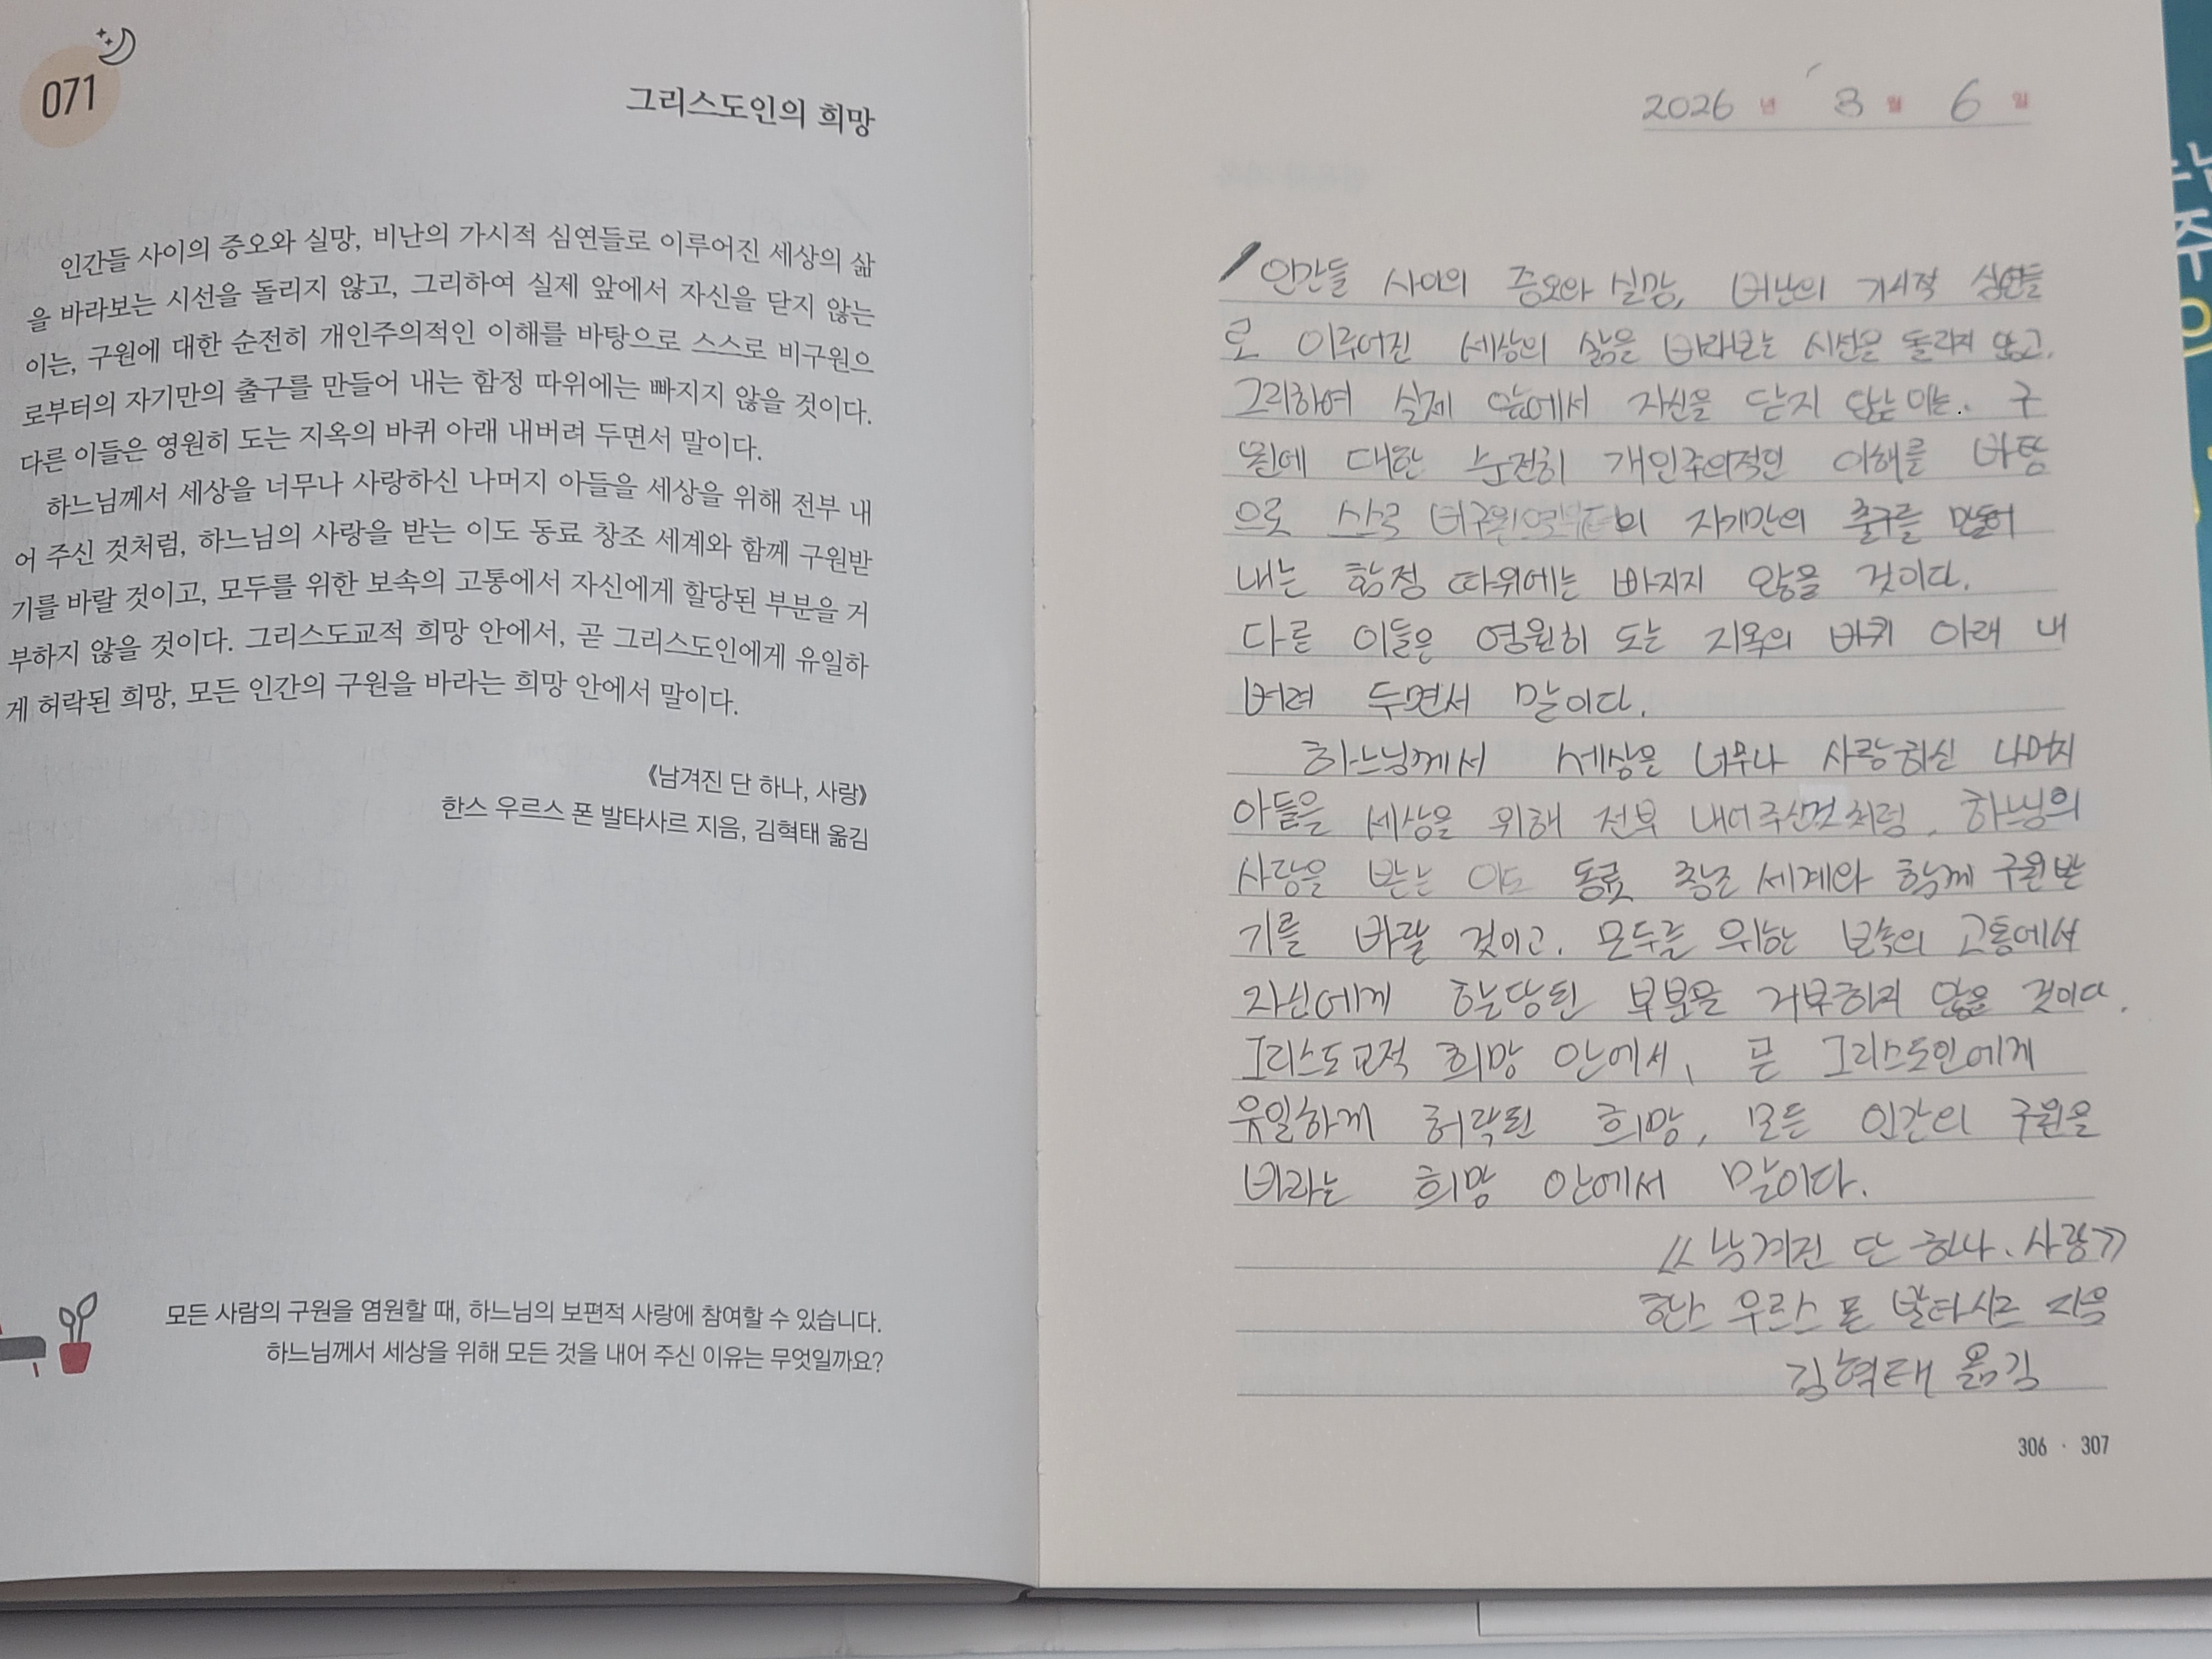 071
그리스도인의 희망
인간들 사이의 증오와 실망, 비난의 가시적 심연들로 이루어진 세상의 삶
을 바라보는 시선을 돌리지 않고, 그리하여 실제 앞에서 자신을 닫지 않는
이는, 구원에 대한 순전히 개인주의적인 이해를 바탕으로 스스로 비구원으
로부터의 자기만의 출구를 만들어 내는 함정 따위에는 빠지지 않을 것이다.
다른 이들은 영원히 도는 지옥의 바퀴 아래 내버려 두면서 말이다.
하느님께서 세상을 너무나 사랑하신 나머지 아들을 세상을 위해 전부 내
어 주신 것처럼, 하느님의 사랑을 받는 이도 동료 창조 세계와 함께 구원받
기를 바랄 것이고, 모두를 위한 보속의 고통에서 자신에게 할당된 부분을 거
부하지 않을 것이다. 그리스도교적 희망 안에서, 곧 그리스도인에게 유일하
게 허락된 희망, 모든 인간의 구원을 바라는 희망 안에서 말이다.
《남겨진 단 하나, 사랑》
한스 우르스 폰 발타사르 지음, 김혁태 옮김
모든 사람의 구원을 염원할 때, 하느님의 보편적 사랑에 참여할 수 있습니다.
하느님께서 세상을 위해 모든 것을 내어 주신 이유는 무엇일까요?
2026 년 3 월 6 일
인간들 사이의 증오와 실망, 비난의 가시적 심연들
로 이루어진 세상의 삶을 바라보는 시선을 돌리지 않고,
그리하여 실제 앞에서 자신을 닫지 않는 이는. 구
원에 대한 순전히 개인주의적인 이해를 바탕
으로 비구원으로부터의 자기만의 출구를 만들어
내는 함정 따위에는 빠지지 않을 것이다.
다른 이들은 영원히 도는 지옥의 바퀴 아래 내
버려 두면서 말이다.
하느님께서 세상을 너무나 사랑하신 나머지
아들을 세상을 위해 전부 내어주신것처럼, 하느님의
사랑을 받는 이도 동료 창조 세계와 함께 구원받
기를 바랄 것이고. 모두를 위한 보속의 고통에서
자신에게 할당된 부분을 거부하지 않을 것이다.
그리스도교적 희망 안에서, 그리스도인에게
유일하게 허락된 희망, 모든 인간의 구원을
바라는 희망 안에서 말이다.
《남겨진 단 하나. 사랑》
한스 우르스 폰 발타사르 지음
김혁태 옮김
306 · 307